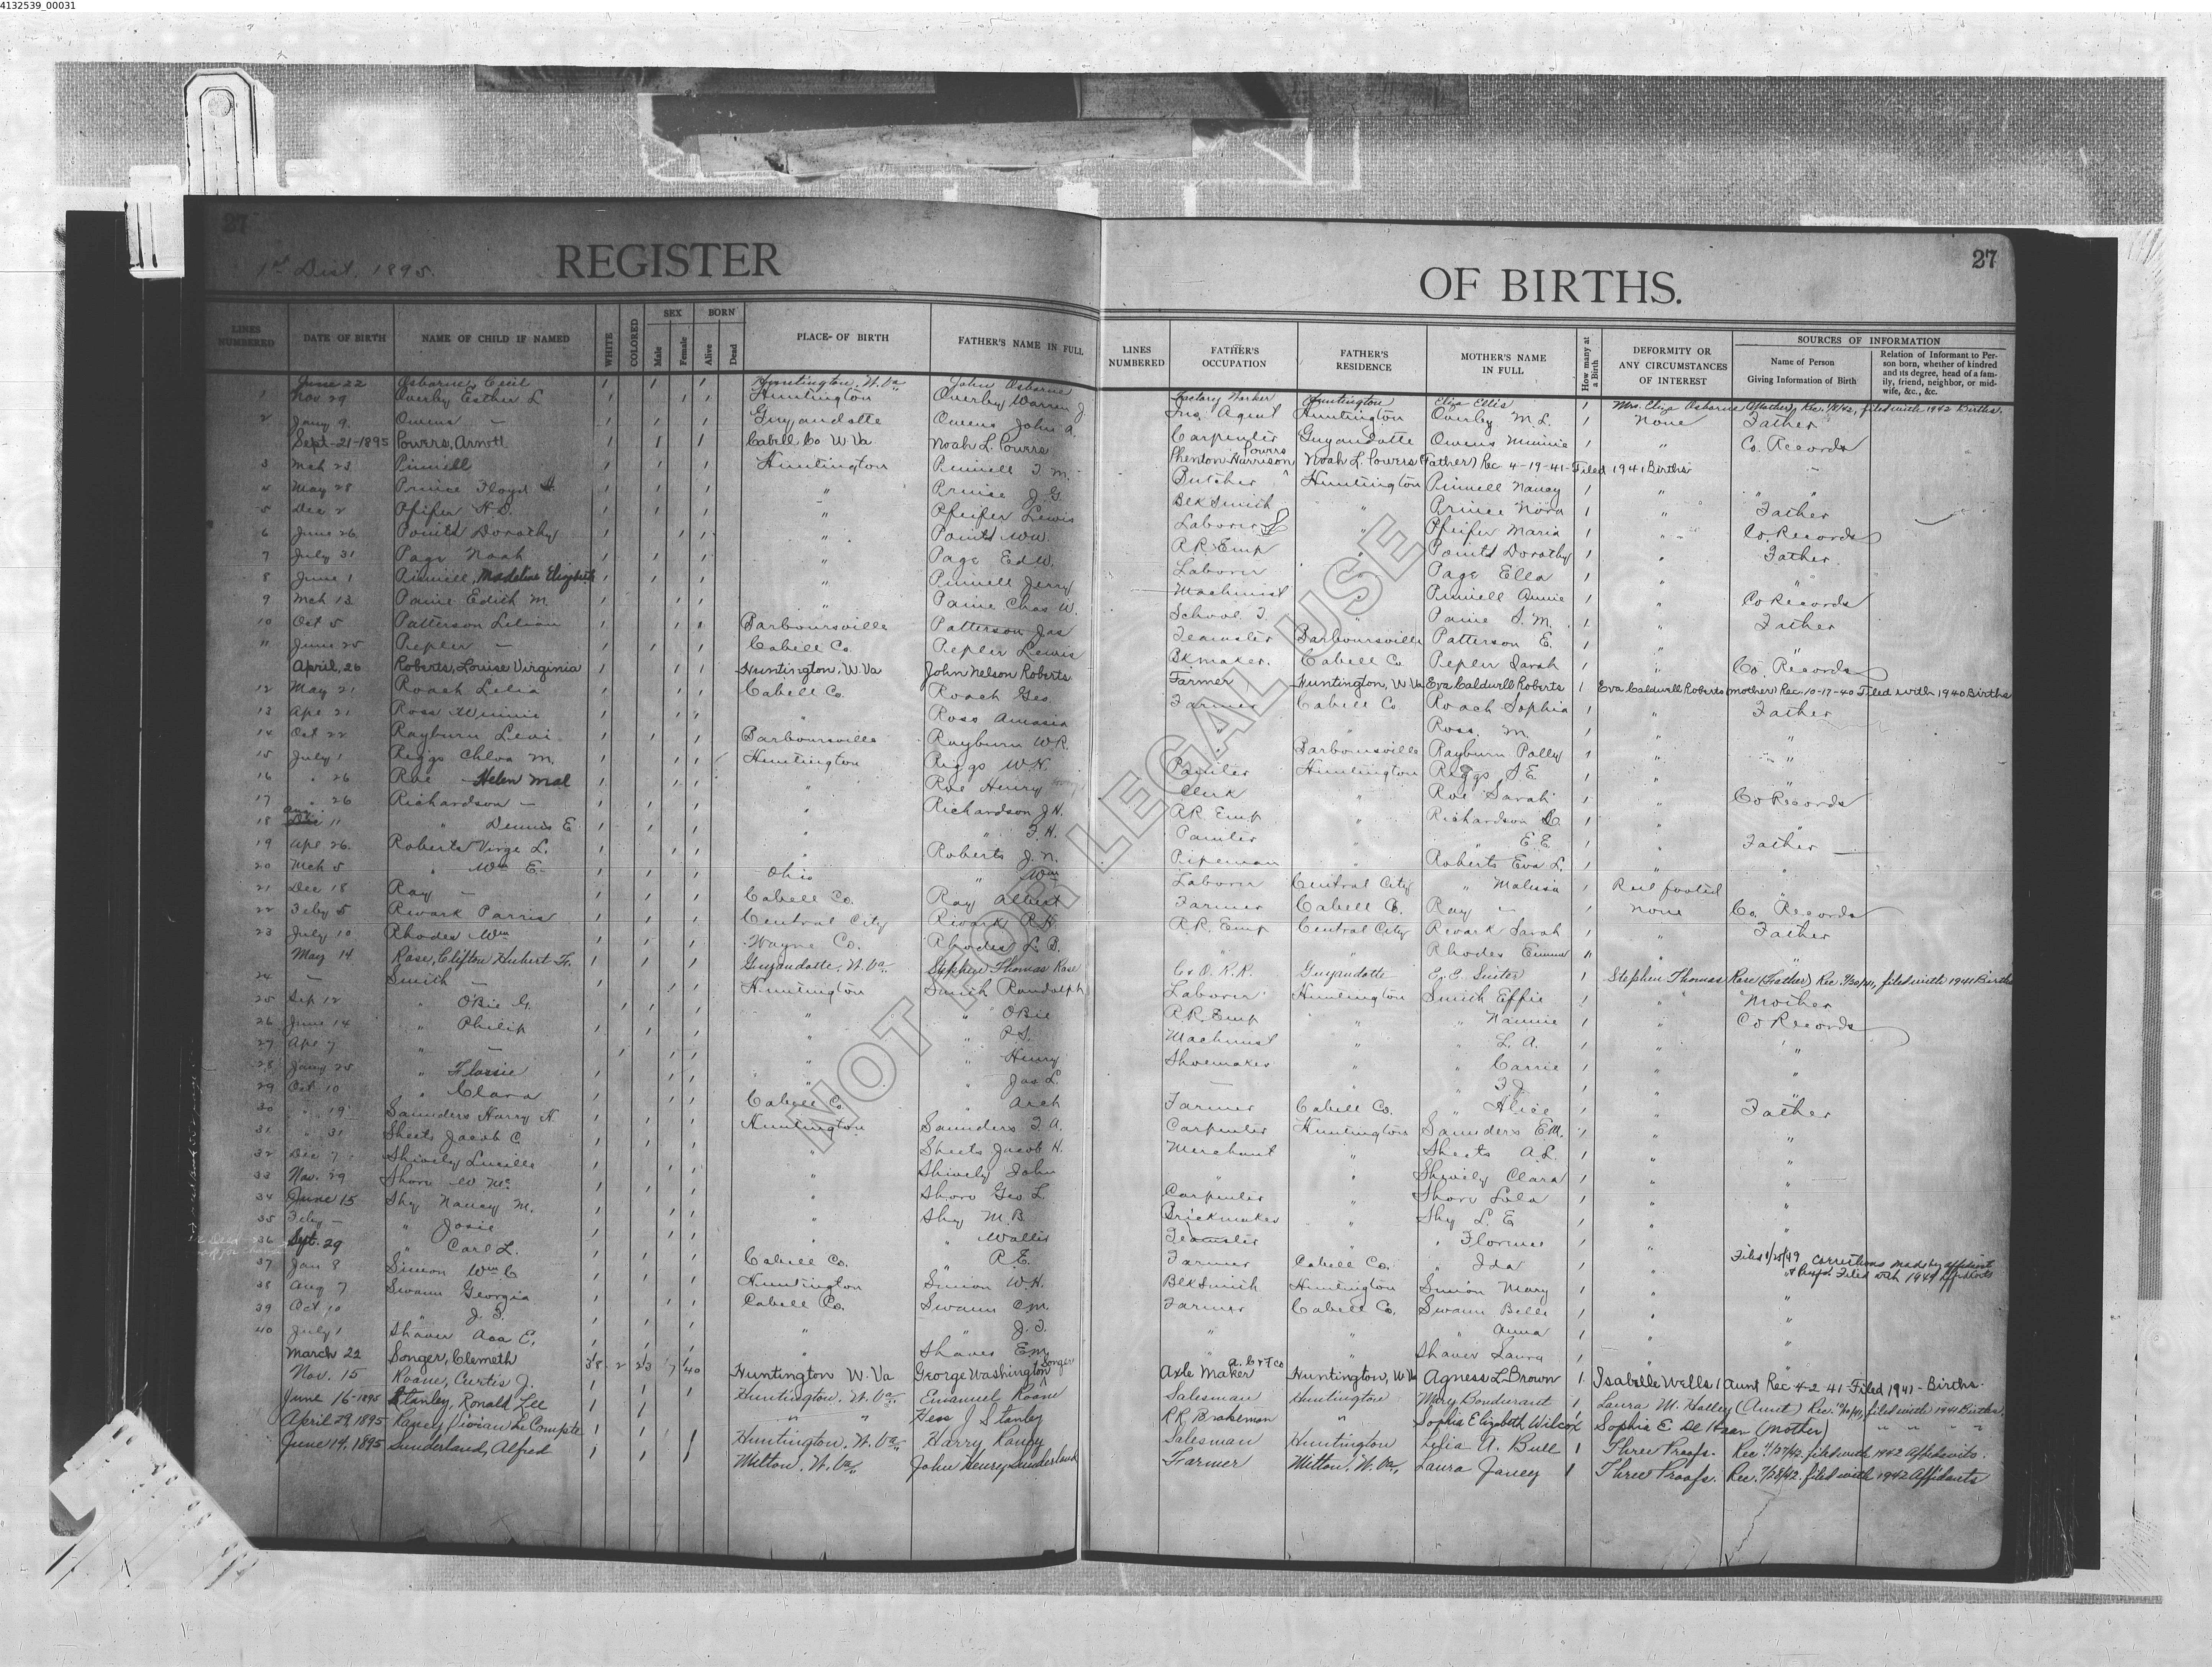 4132539_00031
27
1st Dist. 1895.
REGISTER
OF BIRTHS.
27
LINES NUMBERED
DATE OF BIRTH
NAME OF CHILD IF NAMED
WHITE
COLORED
SEX
Male
Female
BORN
Alive
Dead
PLACE OF BIRTH
FATHER'S NAME IN FULL
LINES NUMBERED
FATHER'S OCCUPATION
FATHER'S RESIDENCE
MOTHER'S NAME IN FULL
How many at a Birth
DEFORMITY OR ANY CIRCUMSTANCES OF INTEREST
SOURCES OF INFORMATION
Name of Person Giving Information of Birth
Relation of Informant to Person born, whether of kindred and its degree, head of a family, friend, neighbor, or midwife, &c., &c.
June 22 Osborne, Cecil Huntington, W. Va John Osborne Factory Worker Huntington Eliza Ellis 1 Mrs. Eliza Osborne (Mother) Rec. filed with 1942 Births.
1 Nov 29 Overby Esther L Huntington Overby Warren J Ins. Agent Huntington Overby M. L. 1 None Father
2 Jany 9 Owens — Guyandotte Owens John A. Carpenter Guyandotte Owens Minnie 1 " Co. Records
Sept-21-1895 Powers, Arnott Cabell Co W Va Noah L. Powers Shenton Harrison Powers Noah L. Powers (Father) Rec 4-19-41-Filed 1941 Births
3 Mch 23 Pinnell Huntington Pinnell T. M. Butcher Huntington Pinnell Nancy 1 "
4 May 28 Prince Floyd " J. G. Blk Smith " Prince Nora 1 " Father
5 Dec 2 Pfeifer H. D. " Pfeifer Lewis Laborer " Pfeifer Maria 1 " Co. Records
6 June 26 Points Dorothy " Points Wm. R.R. Emp " Points Dorothy 1 " Father
7 July 31 Page Noah " Page Ed W. Laborer " Page Ella 1 " "
8 June 1 Pinnell, Madeline Elizabeth " Pinnell Jerry Machinist " Pinnell Annie 1 " Co Records
9 Mch 13 Paine Edith M. " Paine Chas W. School T. " Paine S. M. 1 " Father
10 Oct 5 Patterson Lilian Barboursville Patterson Jas Teamster Barboursville Patterson E. 1 "
11 June 25 Pepler — Cabell Co. Pepler Lewis Bkmaker. Cabell Co Pepler Sarah 1 " Co. Records
April, 26 Roberts, Louise Virginia Huntington, W. Va John Nelson Roberts Farmer Huntington, W Va Eva Caldwell Roberts 1 Eva Caldwell Roberts (mother) Rec. 10-17-40 Filed with 1940 Births
12 May 21 Roach Lelia Cabell Co. Roach Geo. Farmer Cabell Co Roach Sophia 1 " Father
13 Apr 21 Ross Winnie " Ross Amasia " " Ross M. 1 " "
14 Oct 22 Rayburn Levi Barboursville Rayburn W.R. Barboursville Rayburn Polly 1 " "
15 July 1 Riggs Chloa M. Huntington Riggs W. N. Painter Huntington Riggs S. E. 1 " "
16 " 26 Roe Helen Mal " Roe Henry Clerk " Roe Sarah 1 " Co Records
17 " 26 Richardson — " Richardson J. H. R.R. Emp " Richardson L. 1 " "
18 Aug 11 " Dennis E " " T. H. Painter " " E. E. 1 " Father
19 Apr 26 Roberts Virge L. " Roberts J. N. Pipeman " Roberts Eva L. 1 " "
20 Mch 5 " Wm E. Ohio " Wm Laborer Central City " Malissa 1 Reel footed "
21 Dec 18 Ray — Cabell Co. Ray Albert Farmer Cabell Co. Ray — 1 None Co. Records
22 Feby 5 Rework Parris Central City Rework R. R.R. Emp Central City Rework Sarah 1 " Father
23 July 10 Rhodes Wm Wayne Co. Rhodes L. B. " " Rhodes Emma " " "
May 14 Rose, Clifton Hubert Guyandotte, W. Va. Stephen Thomas Rose C & O. R.R. Guyandotte Suiter 1 Stephen Thomas Rose (Father) Rec. filed with 1941 Births
24 — Smith — Huntington Smith Randolph Laborer Huntington Smith Effie 1 " Mother
25 Sep 12 " Obie G. " " Obie R.R. Emp " " Nannie 1 " Co Records
26 June 14 " Philip " " P. S. Machinist " " L. A. 1 " "
27 Apr 7 " — " " Henry Shoemaker " " Carrie 1 " "
28 Jany 25 " Flossie " " Jas L. — " " 1 " "
29 Oct 10 " Clara Cabell Co. " Arch Farmer Cabell Co. " Alice 1 " Father
30 " 19 Saunders Harry H. Huntington Saunders T. A. Carpenter Huntington Saunders E. M. 1 " "
31 " 31 Sheets Jacob C. " Sheets Jacob H. Merchant " Sheets A. L. 1 " "
32 Dec 7 Shively Lucille " Shively John " " Shively Clara 1 " "
33 Nov. 29 Shore " Shore Geo L. Carpenter " Shore Lula 1 " "
34 June 15 Shy Nancy M. " Shy M. B. Brickmaker " Shy L. E 1 " "
35 Feby — " Josie " " Walter Teamster " " Florence 1 " "
36 Sept. 29 " Carl L. Cabell Co. " R. E. Farmer Cabell Co. " Ida 1 " Filed 1/25/49 Corrections made by affidavit Filed with 1949 Affidavits
37 Jan 8 Simon Wm C Huntington Simon W. H. Blk Smith Huntington Simon Mary 1 " "
38 Aug 7 Swann Georgia Cabell Co. Swann C M. Farmer Cabell Co. Swann Belle 1 " "
39 Oct 10 " J. T. " " J. T. " " " Anna 1 " "
40 July 1 Shaver Asa E. " Shaver E M. " " Shaver Laura 1 " "
March 22 Songer, Clemeth 38 2 23 17 40 Huntington W. Va George Washington Songer Axle Maker a. C & F Co Huntington, W Va Agness L. Brown 1 Isabelle Wells (Aunt Rec 4-2-41-Filed 1941-Births.
Nov. 15 Roane, Curtis J. Huntington, W. Va. Emanuel Roane Salesman Huntington Mary Bondurant 1 Laura M. Holley (Aunt) Rec. filed with 1941 Births.
June 16-1895 Stanley, Ronald Lee " " Hess J Stanley R.R. Brakeman " Sophia Elizabeth Wilcox 1 Sophia E De Haan (Mother) " " " "
April 29, 1895 Raney, Vivian Le Compte Huntington, W. Va. Harry Raney Salesman Huntington Lelia A. Bull 1 Three Proofs. Rec. 1/27/42, filed with 1942 Affidavits.
June 14, 1895 Sunderland, Alfred Milton, W. Va. John Henry Sunderland Farmer Milton, W. Va. Laura Janey 1 Three Proofs. Rec. 7/28/42, filed with 1942 Affidavits
NOT FOR LEGAL USE